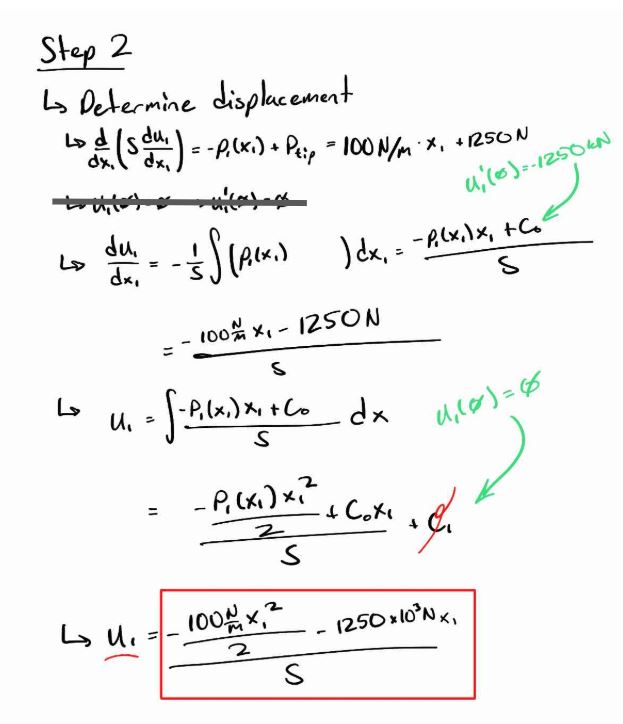 Step 2
↳ Determine displacement
↳ d/dx₁ (S du₁/dx₁) = -P₁(x₁) + P_tip = 100 N/m · x₁ + 1250 N
u₁'(ø) = -1250 kN
↳ du₁/dx₁ = -1/S ∫(P₁(x₁) )dx₁ = (-P₁(x₁)x₁ + C₀)/S
= (-100 N/m x₁ - 1250 N)/S
↳ u₁ = ∫ (-P₁(x₁)x₁ + C₀)/S dx
u₁(ø) = ø
= (-P₁(x₁)x₁²/2 + C₀x₁)/S + C₁
↳ u₁ = (-100 N/m x₁²/2 - 1250 x10³ N x₁)/S